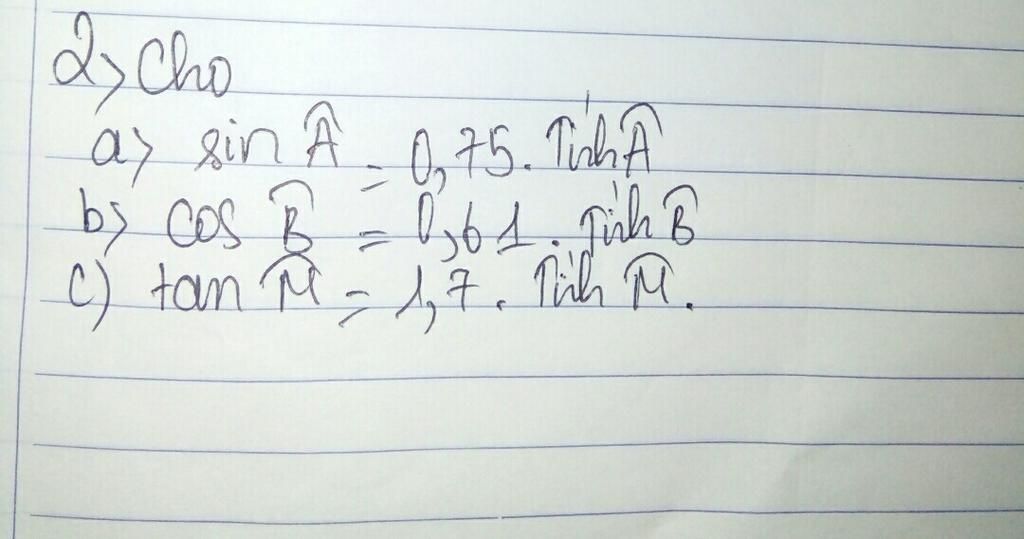 2> Cho
a> sin Â = 0,75. Tính Â
b> cos B̂ = 0,61. Tính B̂
c) tan M̂ = 1,7. Tính M̂.